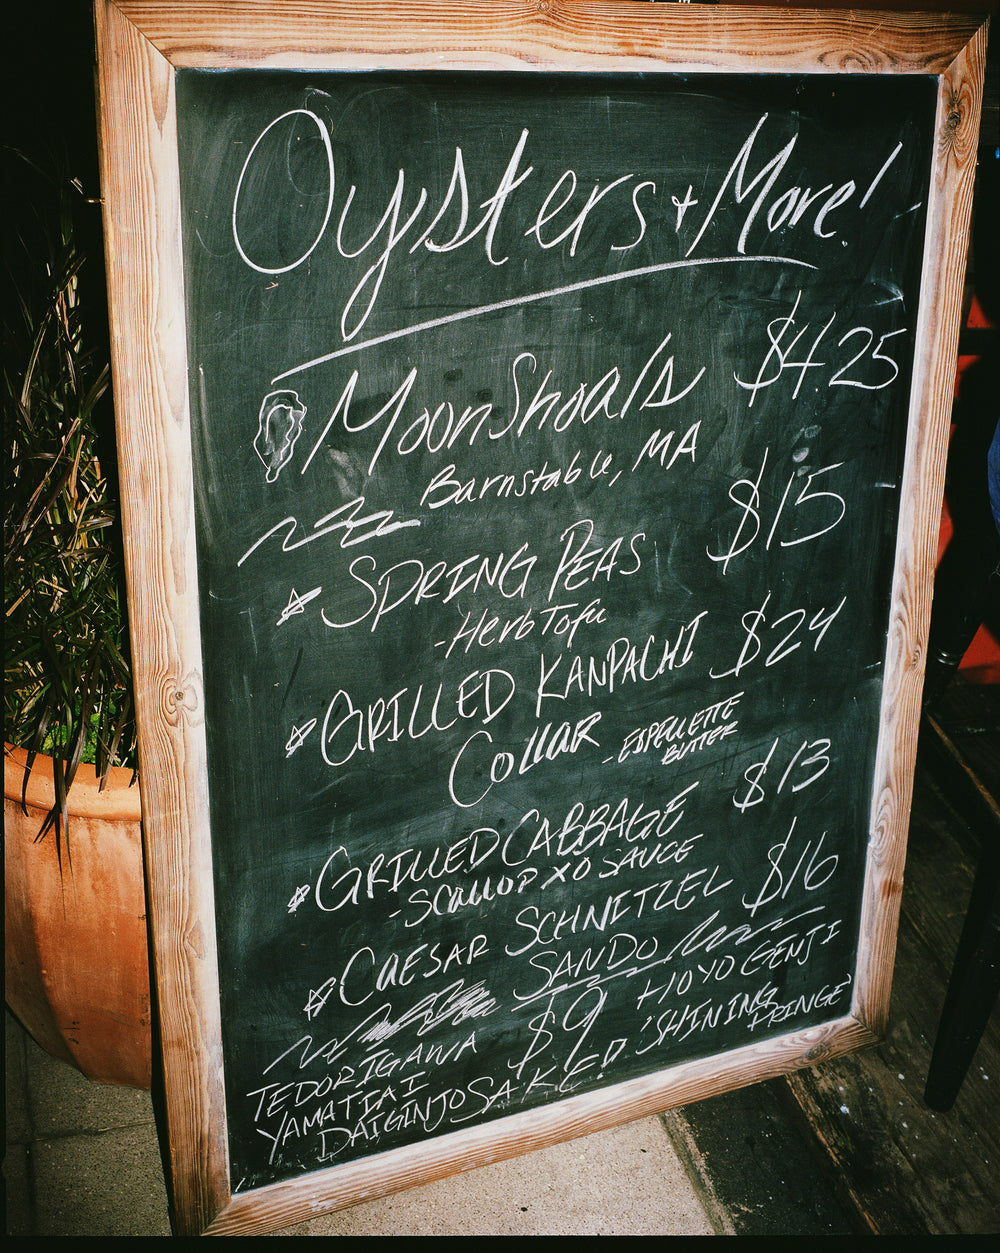 Oysters + More!
MoonShoals $4.25
Barnstable, MA
SPRING PEAS $15
- Herb Tofu
GRILLED KANPACHI $24
Collar - ESPELLETTE
BUTTER
GRILLED CABBAGE $13
- SCALLOP XO SAUCE
CAESAR SCHNITZEL $16
SANDO
TEDORIGAWA $9 HOYO GENJI
YAMATIAI 'SHINING
DAIGINJO SAKE! FRINGE'